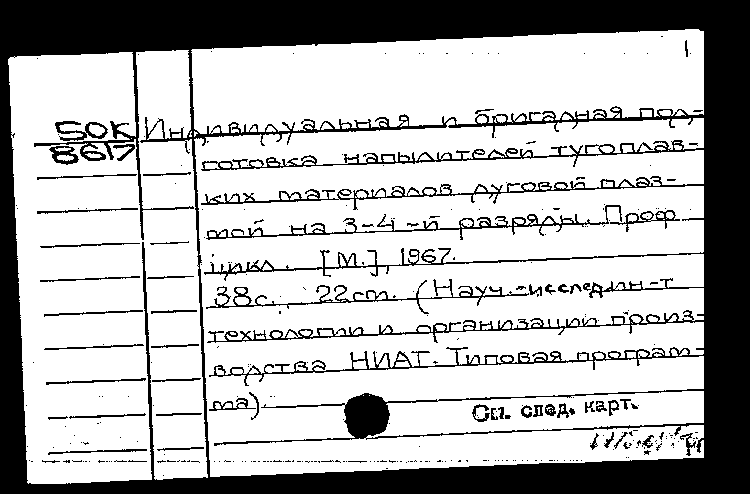 1
50К Индивидуальная и бригадная под-
8617 готовка напылителей тугоплав-
ких материалов дуговой плаз-
мой на 3-4-й разряды. Проф
цикл. [М.], 1967.
38с., 22см. (Науч.-исслед.ин-т
технологии и организации произ-
водства НИАТ. Типовая програм-
ма).
См. след. карт.